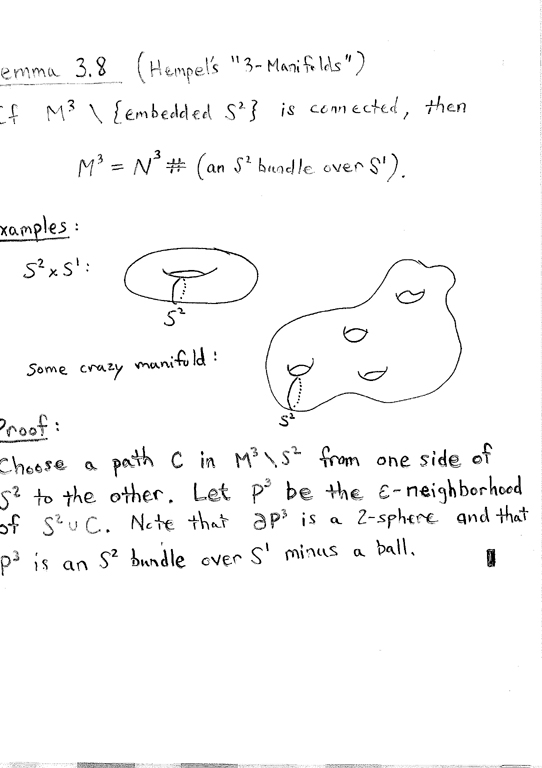 emma 3.8 (Hempel's "3-Manifolds")
If M³ \ {embedded S²} is connected, then
M³ = N³ # (an S² bundle over S¹).
xamples:
S² x S¹:
S²
Some crazy manifold:
S²
Proof:
Choose a path C in M³\S² from one side of
S² to the other. Let P³ be the ε-neighborhood
of S² ∪ C. Note that ∂P³ is a 2-sphere and that
P³ is an S² bundle over S¹ minus a ball.